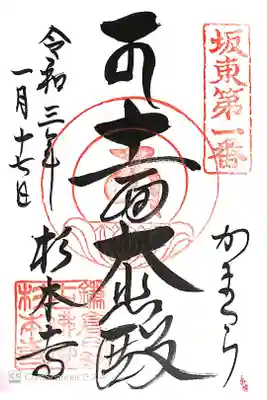 坂東第一番
かまくら
十一面大悲殿
杉本寺
令和三年
一月十七日